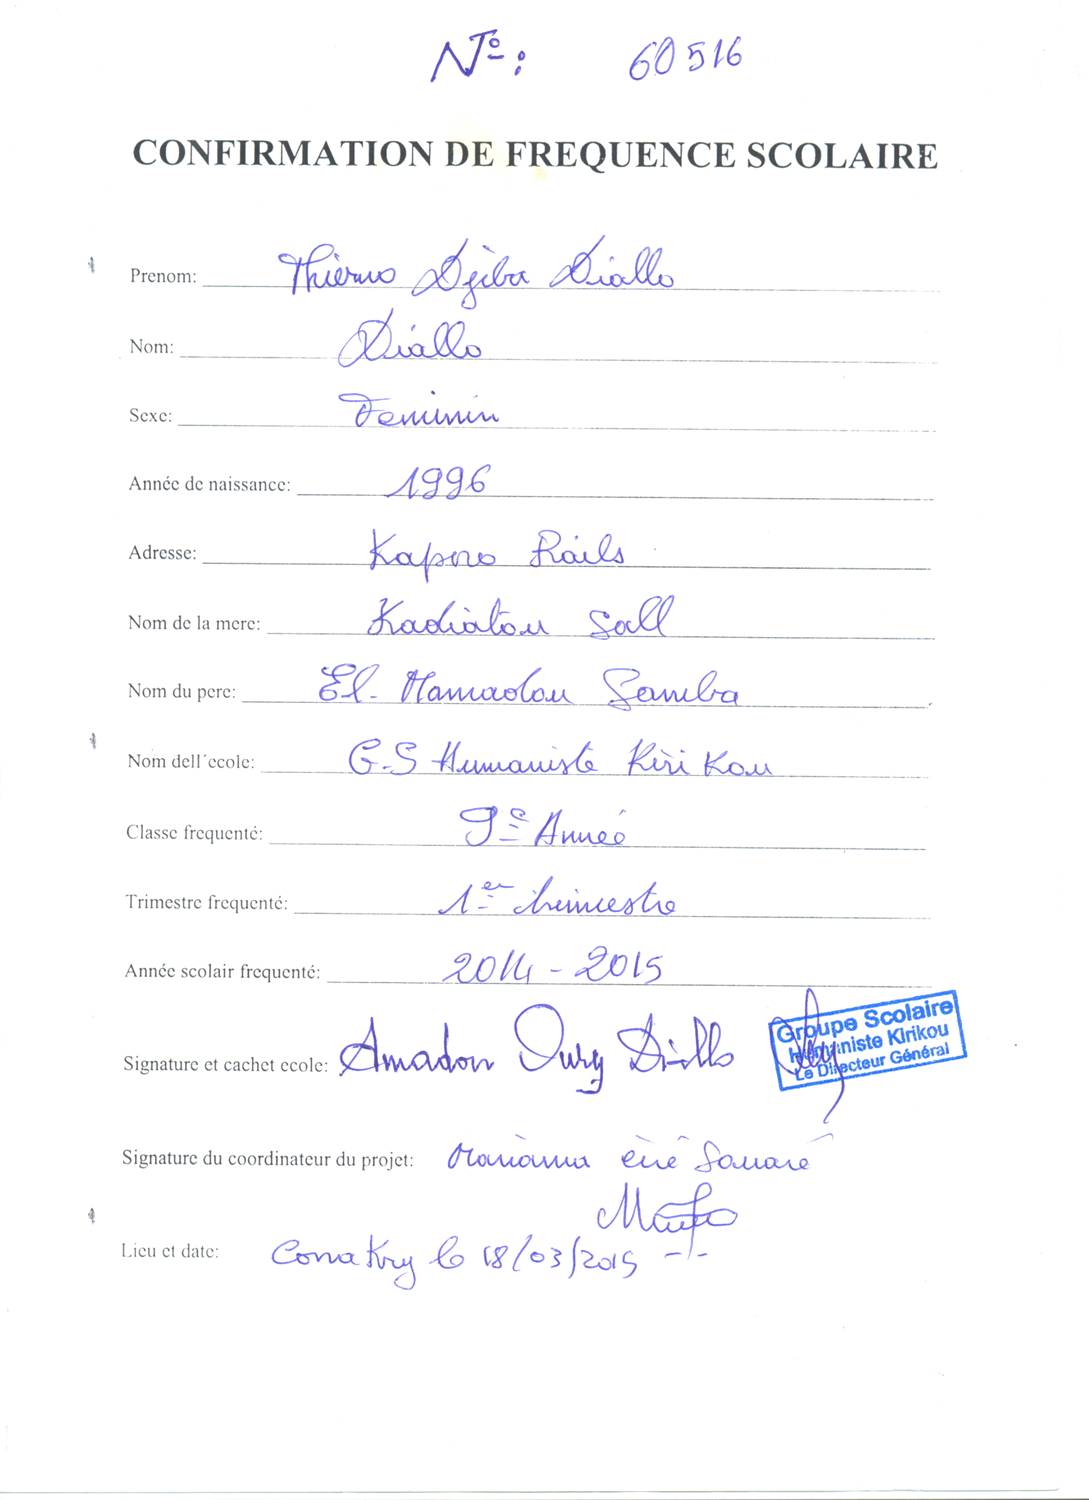 No: 60516
CONFIRMATION DE FREQUENCE SCOLAIRE
Prenom: Thierno Djiba Diallo
Nom: Diallo
Sexe: Feminin
Année de naissance: 1996
Adresse: Kaporo Rails
Nom de la mere: Kadiatou Sall
Nom du pere: El. Mamadou Samba
Nom dell´ecole: G.S Humaniste Kirikou
Classe frequenté: 9e Année
Trimestre frequenté: 1er trimestre
Année scolair frequenté: 2014 - 2015
Signature et cachet ecole: Amadou Oury Diallo
Groupe Scolaire
Humaniste Kirikou
Le Directeur Général
Signature du coordinateur du projet: Mariama Souaré
Lieu et date: Conakry le 18/03/2015